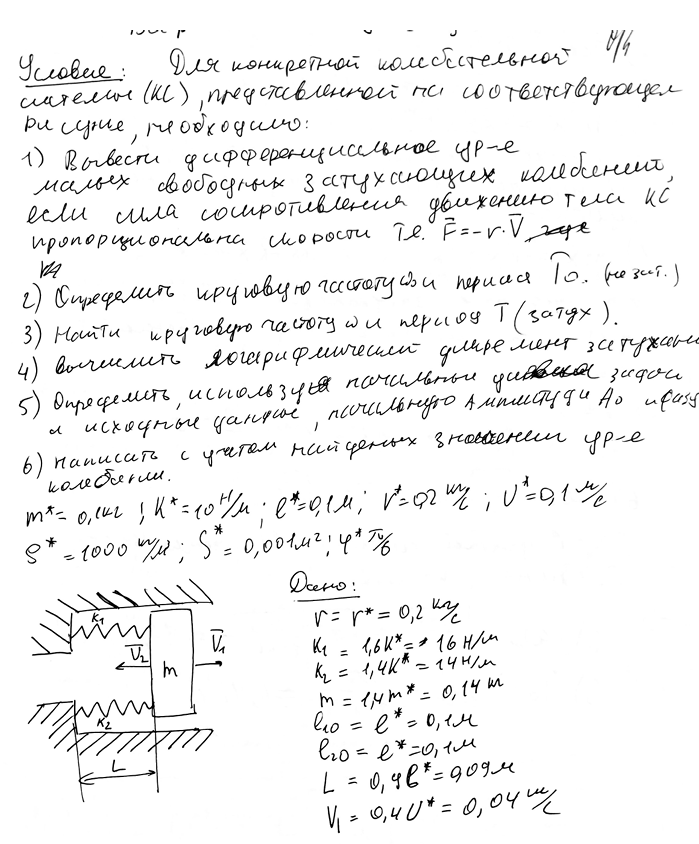 Условие: Для конкретной колебательной
системы (КС), представленной на соответствующем
рисунке, необходимо:
1) Вывести дифференциальное ур-е
малых свободных затухающих колебаний,
если сила сопротивления движению тела КС
пропорциональна скорости т.е. F̅=-r·V̅,
2) Определить круговую частоту ω и период T₀. (не зат.)
3) Найти круговую частоту ω и период T (затух).
4) Вычислить логарифмический декремент затухания
5) Определить, используя начальные условия задачи
и исходные данные, начальную амплитуду A₀ и фазу
6) Написать с учетом найденых значений ур-е
колебания.
m*= 0,1кг ; K*=10 Н/м ; ℓ*=0,1м ; r*=0,2 кг/с ; U*=0,1 м/с
ρ* = 1000 кг/м³ ; S* = 0,001м² ; φ*
Дано:
r = r* = 0,2 кг/с
K₁ = 1,6K* = 16 Н/м
K₂ = 1,4K* = 14 Н/м
m = 1,4m* = 0,14 кг
ℓ₁₀ = ℓ* = 0,1м
ℓ₂₀ = ℓ* = 0,1м
L = 0,9ℓ* = 0,09м
V₁ = 0,4U* = 0,04 м/с
K₁
V̅₂
m
V̅₁
K₂
L